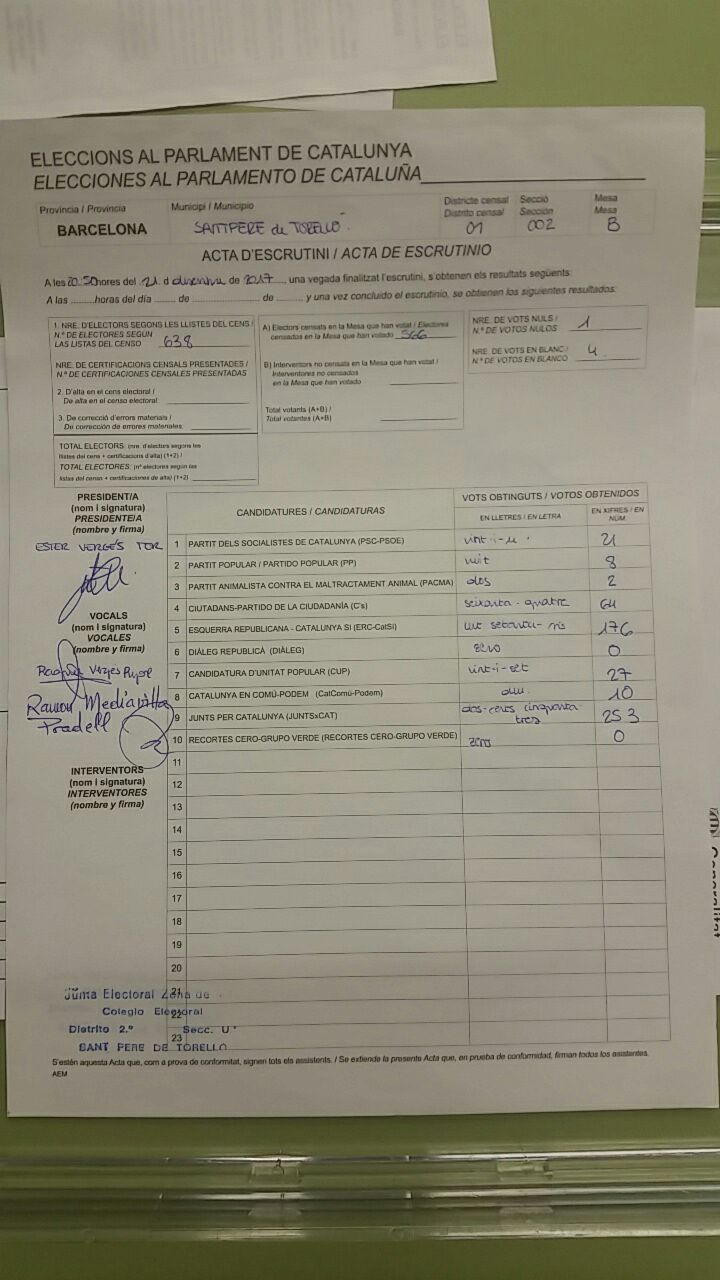 ELECCIONS AL PARLAMENT DE CATALUNYA
ELECCIONES AL PARLAMENTO DE CATALUÑA
Provincia / Provincia Municipi / Municipio Districte censal Secció Mesa
Distrito censal Sección Mesa
BARCELONA SANT PERE de TORELLÓ 01 002 B
ACTA D'ESCRUTINI / ACTA DE ESCRUTINIO
A les 20:50 hores del 21 d desembre de 2017, una vegada finalitzat l'escrutini, s'obtenen els resultats següents:
A las ......... horas del día ......... de ......... de ......... y una vez concluido el escrutinio, se obtienen los siguientes resultados:
1. NRE. D'ELECTORS SEGONS LES LLISTES DEL CENS /
N.º DE ELECTORES SEGÚN
LAS LISTAS DEL CENSO 638
NRE. DE CERTIFICACIONS CENSALS PRESENTADES /
N.º DE CERTIFICACIONES CENSALES PRESENTADAS
2. D'alta en el cens electoral /
De alta en el censo electoral
3. De correcció d'errors materials /
De corrección de errores materiales
TOTAL ELECTORS: (nre. d'electors segons les
llistes del cens + certificacions d'alta) (1+2) /
TOTAL ELECTORES: (nº electores según las
listas del censo + certificaciones de alta) (1+2)
A) Electors censats en la Mesa que han votat / Electores
censados en la Mesa que han votado 566
B) Interventors no censats en la Mesa que han votat /
Interventores no censados
en la Mesa que han votado
Total votants (A+B) /
Total votantes (A+B)
NRE. DE VOTS NULS /
N.º DE VOTOS NULOS 1
NRE. DE VOTS EN BLANC /
N.º DE VOTOS EN BLANCO 4
PRESIDENT/A
(nom i signatura)
PRESIDENTE/A
(nombre y firma)
ESTER VERGÉS TOR
VOCALS
(nom i signatura)
VOCALES
(nombre y firma)
Vergés
Ramon
Pradell
INTERVENTORS
(nom i signatura)
INTERVENTORES
(nombre y firma)
CANDIDATURES / CANDIDATURAS VOTS OBTINGUTS / VOTOS OBTENIDOS
EN LLETRES / EN LETRA EN XIFRES / EN NÚM.
1 PARTIT DELS SOCIALISTES DE CATALUNYA (PSC-PSOE) vint-i-u 21
2 PARTIT POPULAR / PARTIDO POPULAR (PP) vuit 8
3 PARTIT ANIMALISTA CONTRA EL MALTRACTAMENT ANIMAL (PACMA) dos 2
4 CIUTADANS-PARTIDO DE LA CIUDADANÍA (C's) seixanta-quatre 64
5 ESQUERRA REPUBLICANA - CATALUNYA SÍ (ERC-CatSí) cent setanta-sis 176
6 DIÀLEG REPUBLICÀ (DIÀLEG) zero 0
7 CANDIDATURA D'UNITAT POPULAR (CUP) vint-i-set 27
8 CATALUNYA EN COMÚ-PODEM (CatComú-Podem) deu 10
9 JUNTS PER CATALUNYA (JUNTSxCAT) dos-cents cinquanta-tres 253
10 RECORTES CERO-GRUPO VERDE (RECORTES CERO-GRUPO VERDE) zero 0
11
12
13
14
15
16
17
18
19
20
21
22
23
Junta Electoral Zona de
Colegio Electoral
Distrito 2.º Secc. U
SANT PERE DE TORELLO
S'estén aquesta Acta que, com a prova de conformitat, signen tots els assistents. / Se extiende la presente Acta que, en prueba de conformidad, firman todos los asistentes.
AEM